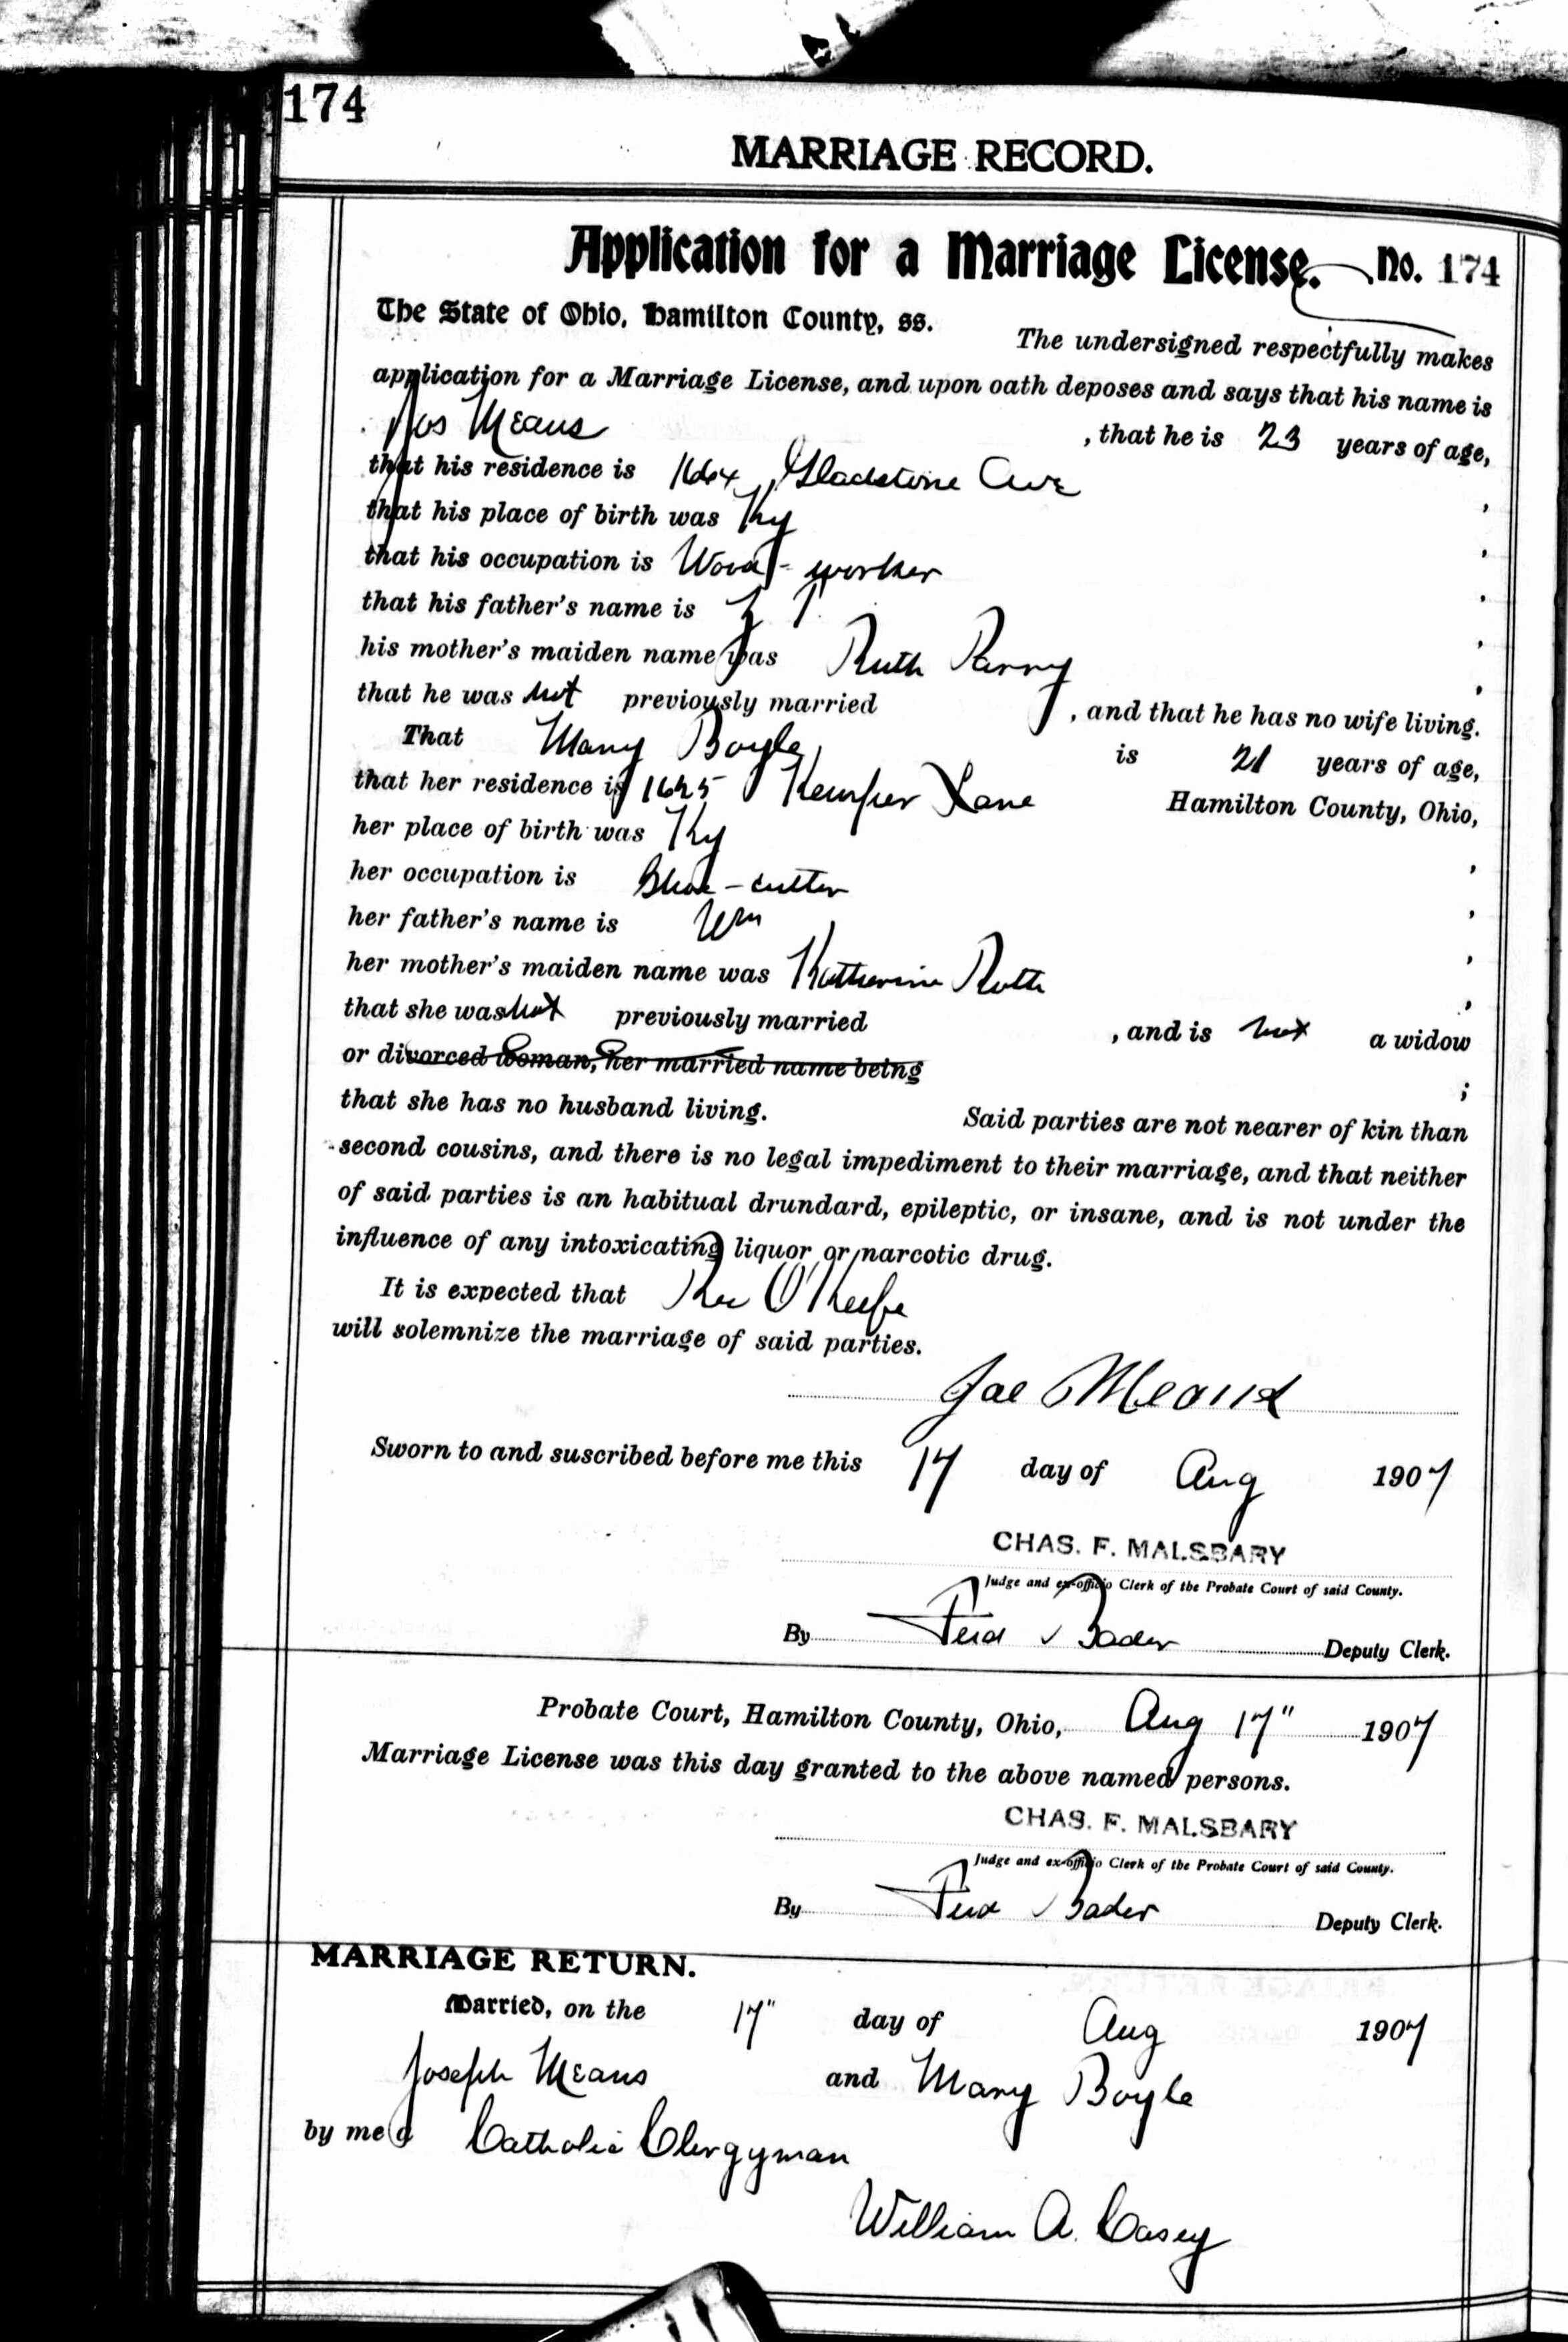 174
MARRIAGE RECORD.
Application for a Marriage License. No. 174
The State of Ohio, Hamilton County, ss.
The undersigned respectfully makes
application for a Marriage License, and upon oath deposes and says that his name is
Jos Means , that he is 23 years of age,
that his residence is 1664 Gladstone Ave ,
that his place of birth was Ky ,
that his occupation is Wood-worker ,
that his father's name is Z T. ,
his mother's maiden name was Ruth Perry ,
that he was not previously married , and that he has no wife living.
That Mary Boyle is 21 years of age,
that her residence is 1625 Kemper Lane Hamilton County, Ohio,
her place of birth was Ky ,
her occupation is Shoe-cutter ,
her father's name is Wm ,
her mother's maiden name was Katherine ,
that she was not previously married , and is not a widow
or divorced woman, her married name being ;
that she has no husband living. Said parties are not nearer of kin than
second cousins, and there is no legal impediment to their marriage, and that neither
of said parties is an habitual drundard, epileptic, or insane, and is not under the
influence of any intoxicating liquor or narcotic drug.
It is expected that Rev O'Keefe
will solemnize the marriage of said parties.
Joe Means
Sworn to and suscribed before me this 17 day of Aug 1907
CHAS. F. MALSBARY
Judge and ex-officio Clerk of the Probate Court of said County.
By Ferd Bader Deputy Clerk.
Probate Court, Hamilton County, Ohio, Aug 17" 1907
Marriage License was this day granted to the above named persons.
CHAS. F. MALSBARY
Judge and ex-officio Clerk of the Probate Court of said County.
By Ferd Bader Deputy Clerk.
MARRIAGE RETURN.
Married, on the 17" day of Aug 1907
Joseph Means and Mary Boyle
by me a Catholic Clergyman
William A. Casey